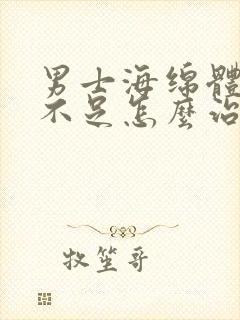 男士海绵體
不足怎麼治
牧笙哥